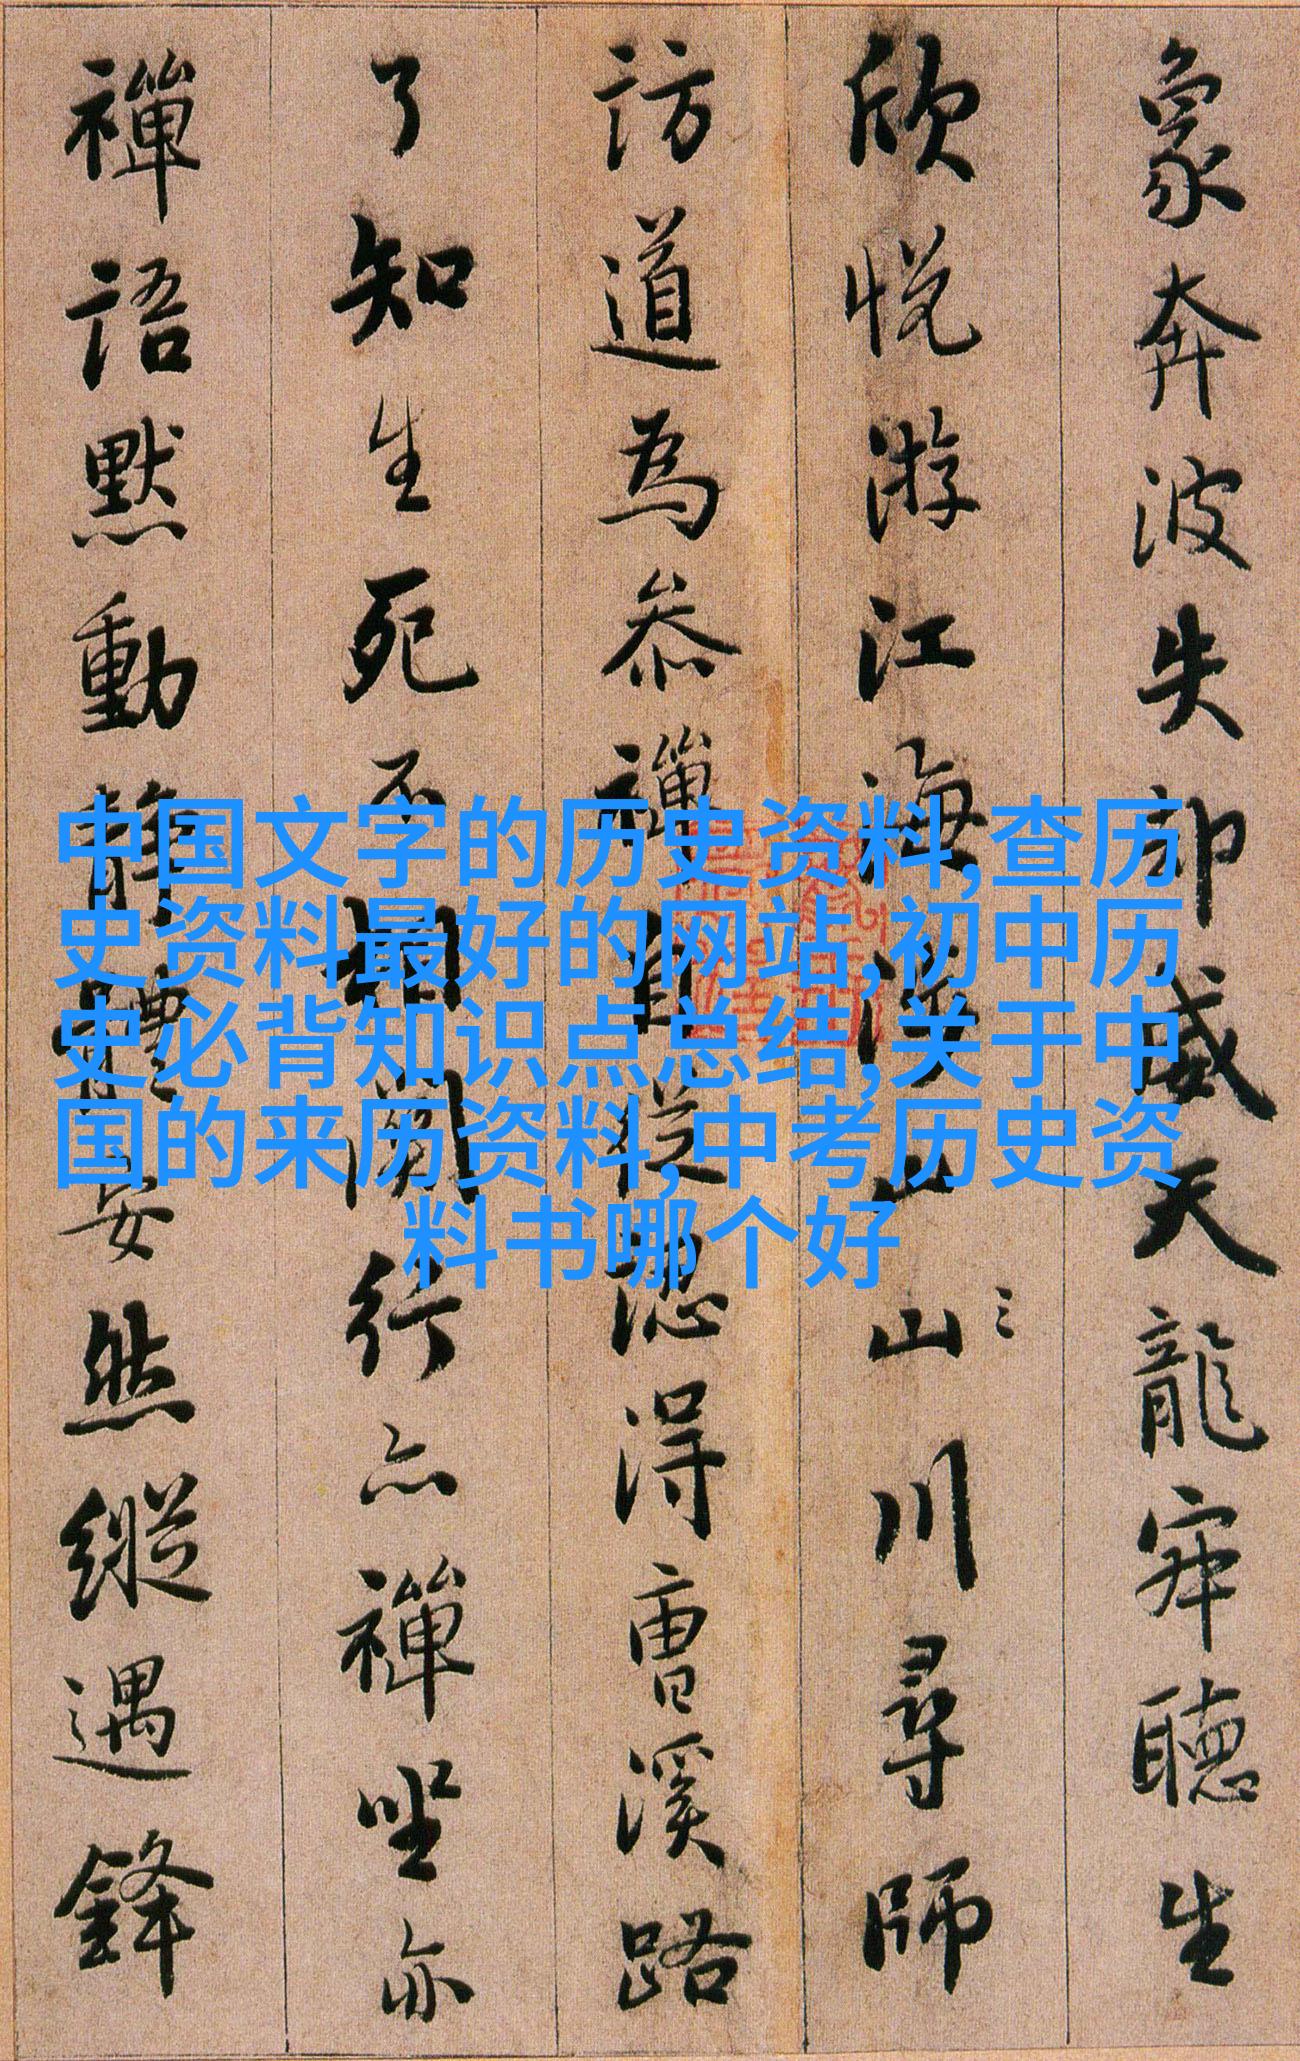 象奔波失却威天龍寂聽生
欣悅游江海涉山山川尋師
訪道為叅禪自從認得曹溪路
了知生死不相關行亦禪坐亦
禪語默動靜體安然縱遇鋒
中国文字的历史资料,查历
史资料最好的网站,初中历
史必背知识点总结,关于中
国的来历资料,中考历史资
料书哪个好